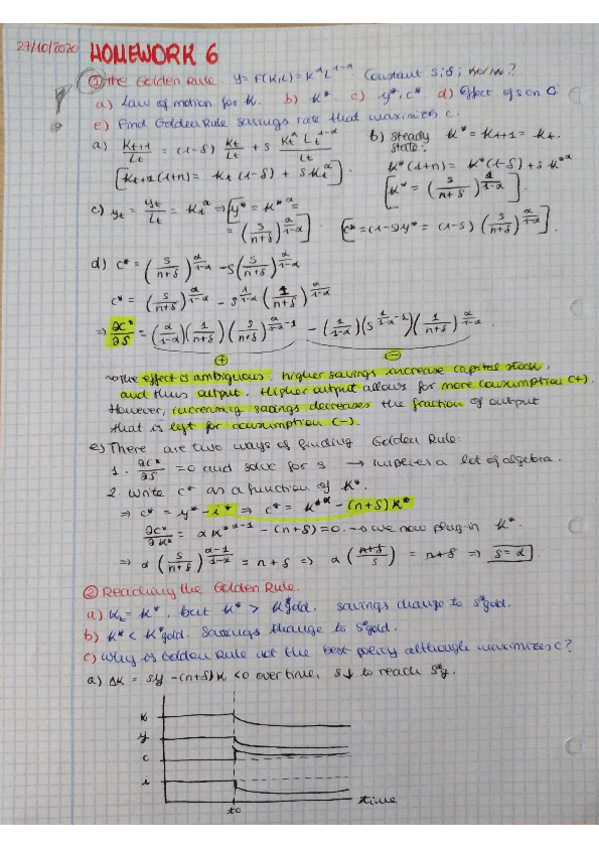 27/10/2020 HOMEWORK 6
① The Golden Rule. Y = F(K,L) = K^α L^1-α. Constant s; δ;
a) Law of motion for K. b) K*. c) y*; c*. d) Effect of s on C.
e) Find Golden Rule savings rate that maximizes c.
a) Kt+1/Lt = (1-δ) Kt/Lt + s Kt^α Lt^1-α/Lt
[Kt+1(1+n) = Kt(1-δ) + s Kt^α].
b) Steady state: K* = Kt+1 = Kt.
K*(1+n) = K*(1-δ) + s K*^α
[K* = (s/n+δ)^1/1-α].
c) yt = Yt/Lt = Kt^α ⇒ [y* = K*^α =
= (s/n+δ)^α/1-α].
[c* = (1-s)y* = (1-s) (s/n+δ)^α/1-α].
d) c* = (s/n+δ)^α/1-α - s(s/n+δ)^α/1-α
c* = (s/n+δ)^α/1-α - s^1/1-α (1/n+δ)^α/1-α
⇒ ∂c*/∂s = (α/1-α)(1/n+δ)(s/n+δ)^α/1-α -1 - (1/1-α)(s^1/1-α -1)(1/n+δ)^α/1-α.
+ -
The effect is ambiguous: higher savings increase capital stock,
and thus output. Higher output allows for more consumption (+).
However, increasing savings decreases the fraction of output
that is left for consumption (-).
e) There are two ways of finding Golden Rule:
1. ∂c*/∂s = 0 and solve for s → implies a lot of algebra.
2. Write c* as a function of K*.
⇒ c* = y* - i* ⇒ c* = K*^α - (n+δ)K*
∂c*/∂K* = α K*^α-1 - (n+δ) = 0. → we now plug-in K*.
⇒ α (s/n+δ)^α-1/1-α = n+δ ⇒ α (n+δ/s) = n+δ ⇒ s = α
② Reaching the Golden Rule.
a) Kt = K*, but K* > K*gold. Savings change to s*gold.
b) K* < K*gold. Savings change to s*gold.
c) Why is Golden Rule not the best policy although maximizes C?
a) ΔK = sy - (n+δ)K < 0 over time, s↓ to reach s*g.
K
y
c
i
t0
time